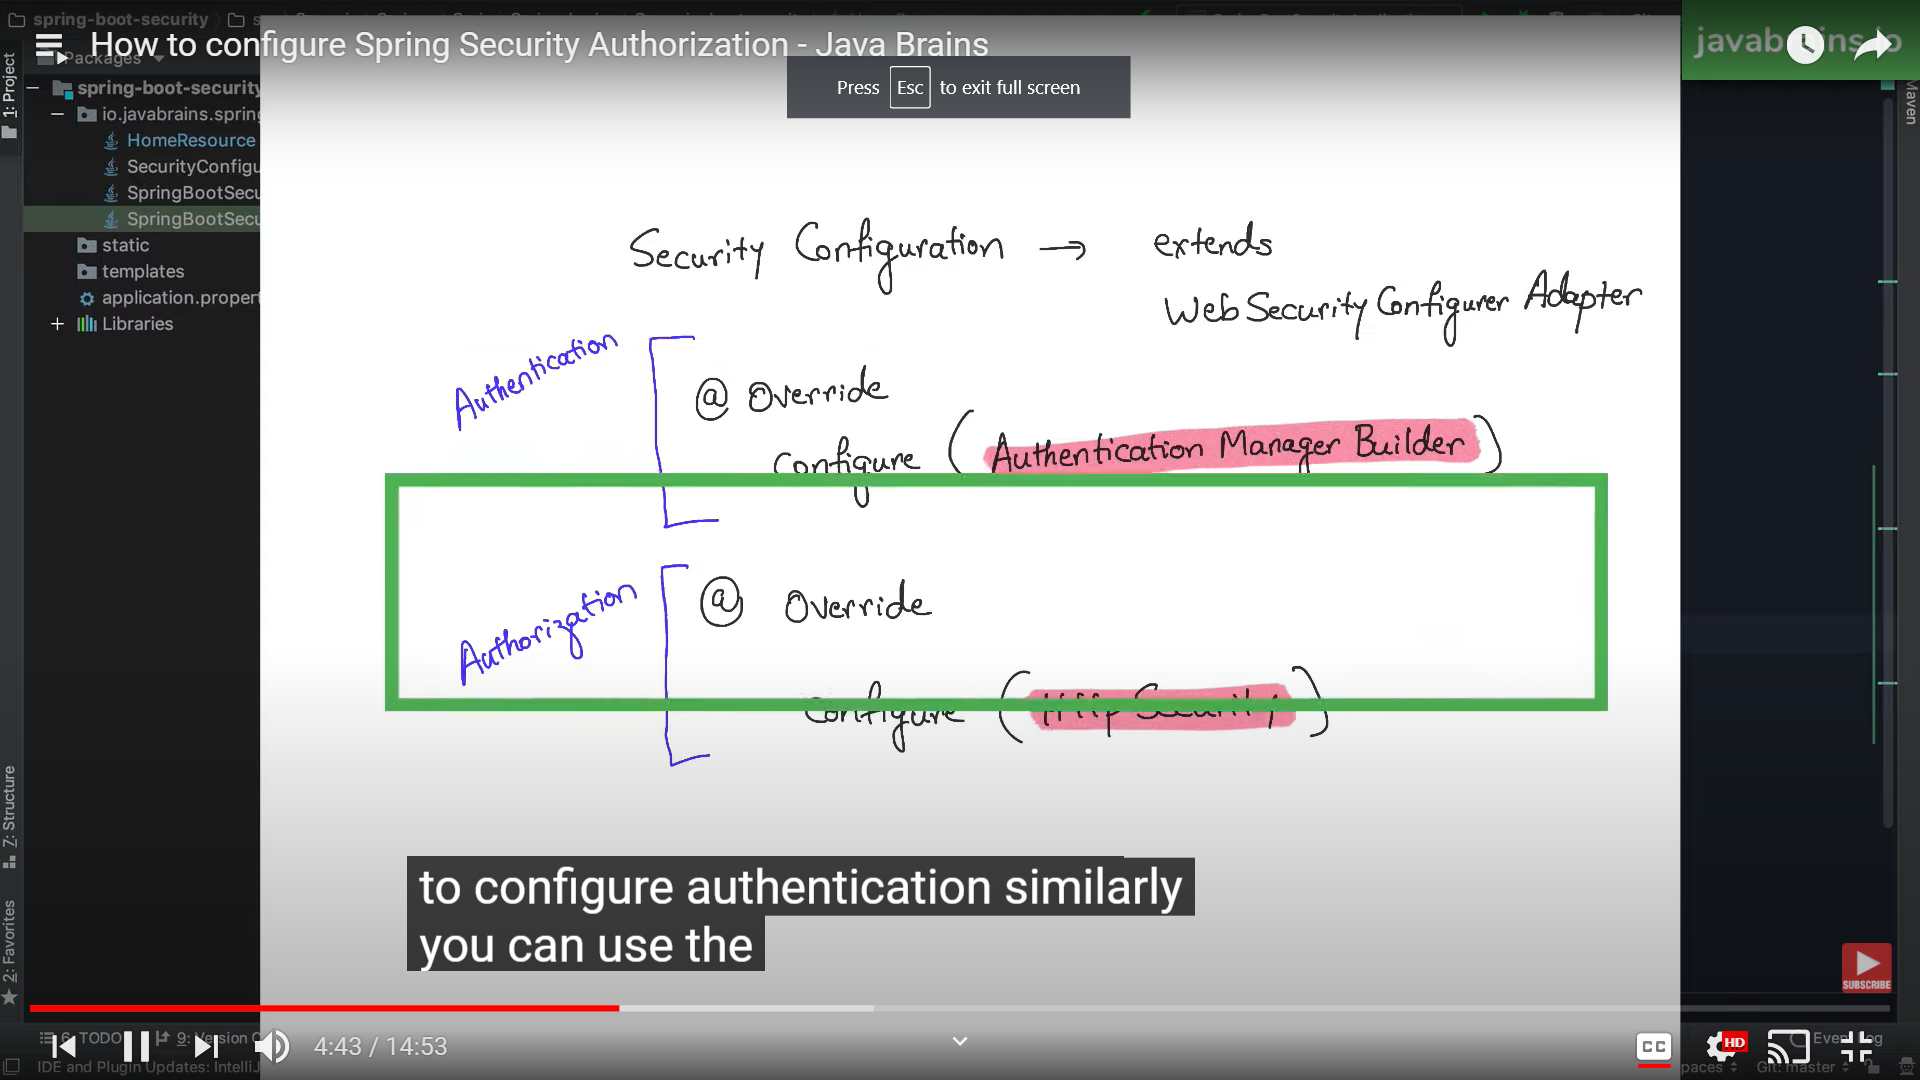 spring-boot-security
How to configure Spring Security Authorization - Java Brains
Packages
Press Esc to exit full screen
1: Project
Maven
spring-boot-security
io.javabrains.spring
HomeResource
SecurityConfigu
SpringBootSecu
SpringBootSecu
static
templates
application.propert
Libraries
Security Configuration → extends
WebSecurity Configurer Adapter
Authentication
@ Override
Configure (Authentication Manager Builder)
Authorization
@ Override
Configure (Http Security)
to configure authentication similarly
you can use the
Z: Structure
2: Favorites
SUBSCRIBE
6: TODO
9: Version C
4:43 / 14:53
CC
HD
Event Log
IDE and Plugin Updates: IntelliJ
paces
Git: master